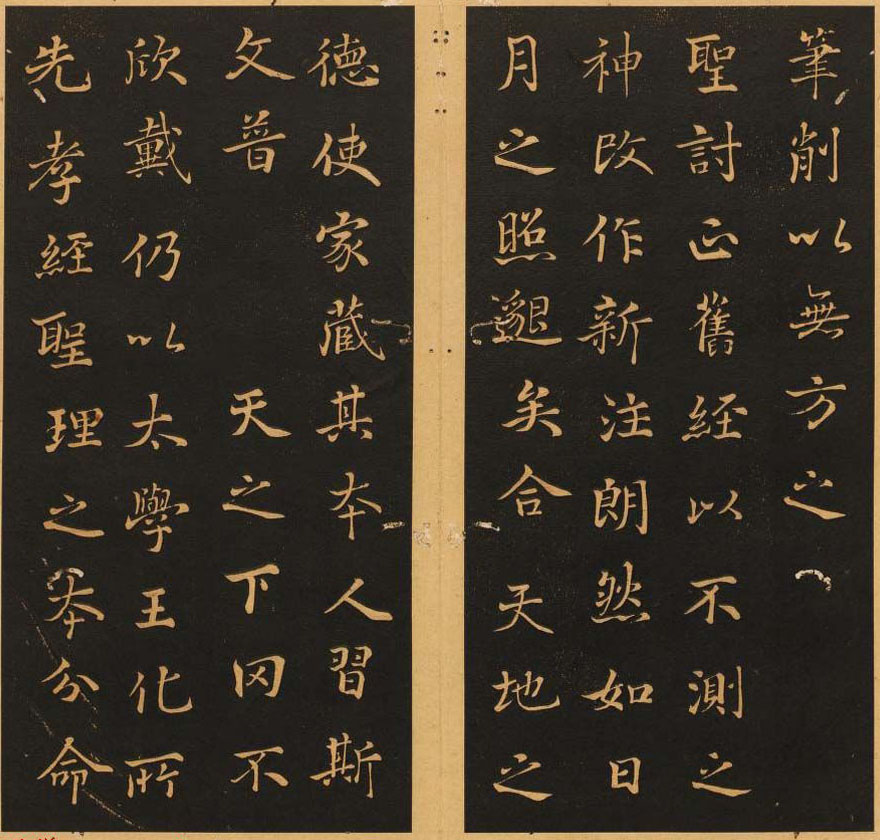 筆削以無方之
聖討正舊經以不測之
神改作新注朗然如日
月之照邈矣合天地之
德使家藏其本人習斯
文普天之下罔不
欣戴仍以太學王化所
先孝經聖理之本分命